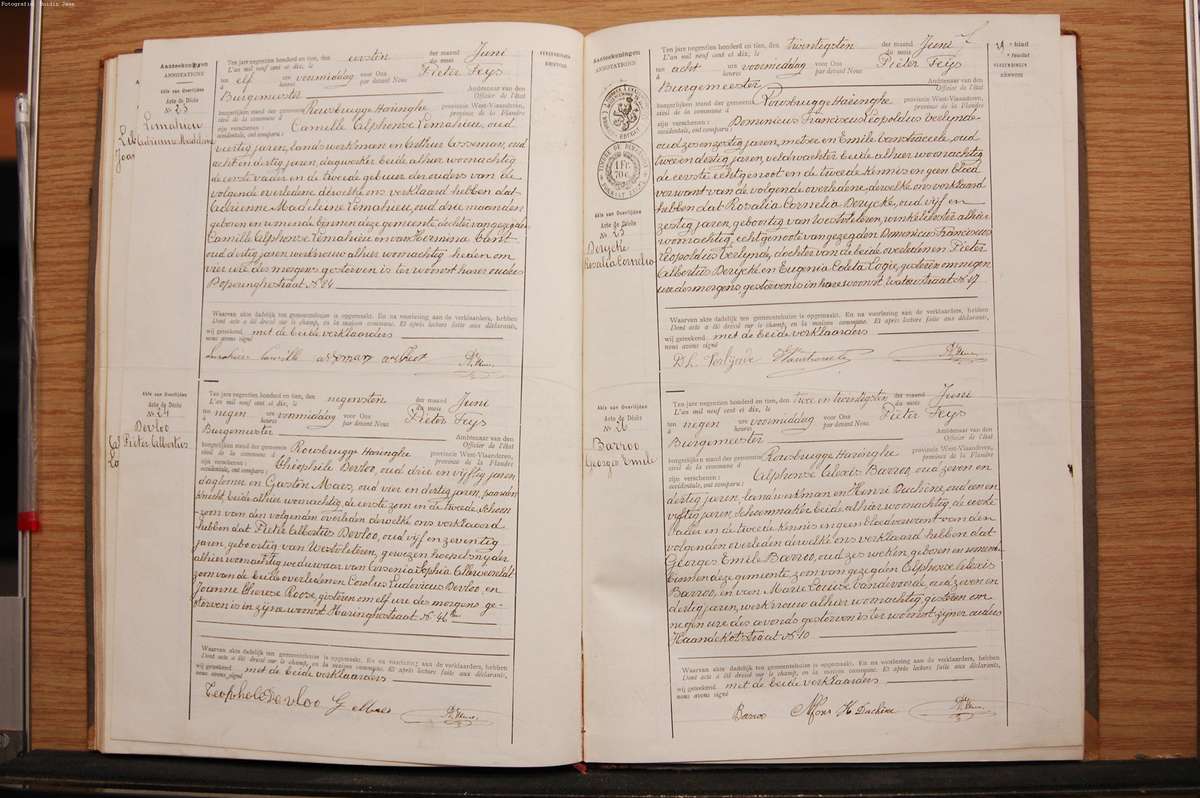 Fotografie: Guido Jase
Aanteekeningen
ANNOTATIONS
Akte van Overlijden
Acte de Décès
No 23
Lemahieu
Adrienne Madeleine
Ten jare negentien honderd en tien, den eersten der maand Juni
L'an mil neuf cent et dix, le du mois
ten elf ure voormiddag voor Ons Pieter Feys
à heures par devant Nous
Burgemeester Ambtenaar van den
Officier de l'état
burgerlijken stand der gemeente Rousbrugge Haringhe provincie West-Vlaanderen,
civil de la commune d province de la Flandre
zijn verschenen: Camille Alphonse Lemahieu, oud
occidentale, ont comparu:
veertig jaren, landswerkman en Arthur Cosseman, oud
acht en dertig jaren, dagwerker beide alhier woonachtig
de eerste vader en de tweede gebuur der ouders van de
volgende overledene, dewelke ons verklaard hebben dat
Adrienne Madeleine Lemahieu, oud drie maanden
geboren en wonende binnen deze gemeente, dochter van gezegden
Camille Alphonse Lemahieu en van Hermenia Cant
oud dertig jaren, werkvrouw alhier woonachtig, heden om
vier ure des morgens gestorven is ter woonst harer ouders
Poperinghestraat No 84
Waarvan akte dadelijk ten gemeentehuize is opgemaakt. En na voorlezing aan de verklaarders, hebben
Dont acte a été dressé sur le champ, en la maison commune. Et après lecture faite aux déclarants,
wij geteekend met de beide verklaarders
nous avons signé
Lemahieu Camille
Akte van Overlijden
Acte de Décès
No 24
Devloo
Pieter Albertus
Ten jare negentien honderd en tien, den negensten der maand Juni
L'an mil neuf cent et dix, le du mois
ten negen ure voormiddag voor Ons Pieter Feys
à heures par devant Nous
Burgemeester Ambtenaar van den
Officier de l'état
burgerlijken stand der gemeente Rousbrugge Haringhe provincie West-Vlaanderen,
civil de la commune d province de la Flandre
zijn verschenen: Theophiele Devloo, oud drie en vijftig jaren
occidentale, ont comparu:
dagloener en Gaston Maes, oud vier en dertig jaren, paarden
knecht, beide alhier woonachtig, de eerste zoon en de tweede schoon
zoon van den volgenden overleden dewelke ons verklaard
hebben dat Pieter Albertus Devloo, oud vijf en zeventig
jaren, geboortig van Westvleteren, gewezen hoepelsnyder
alhier woonachtig weduwaar van Arsenia Sophia
zoon van de beide overledenen Carolus Ludovicus Devloo, en
Joanne Therese Roose, gisteren om elf ure des morgens ge-
storven is in zijne woonst Haringhestraat No 46
Waarvan akte dadelijk ten gemeentehuize is opgemaakt. En na voorlezing aan de verklaarders, hebben
Dont acte a été dressé sur le champ, en la maison commune. Et après lecture faite aux déclarants,
wij geteekend met de beide verklaarders
nous avons signé
Teophiel Devloo G Maes
Aanteekeningen
ANNOTATIONS
1 Fr.
70c
Akte van Overlijden
Acte de Décès
No 25
Derycke
Rosalia Cornelia
Ten jare negentien honderd en tien, den twintigsten der maand Juni
L'an mil neuf cent et dix, le du mois
ten acht ure voormiddag voor Ons Pieter Feys
à heures par devant Nous
Burgemeester Ambtenaar van den
Officier de l'état
burgerlijken stand der gemeente Rousbrugge Haringhe provincie West-Vlaanderen,
civil de la commune d province de la Flandre
zijn verschenen: Dominicus Franciscus Leopoldus
occidentale, ont comparu:
oud zesenzestig jaren, metser en Emile oud
twee en dertig jaren, veldwachter beide alhier woonachtig
de eerste echtgenoot en de tweede kennis en geen bloed
verwant van de volgende overledene, dewelke ons verklaard
hebben dat Rosalia Cornelia Derycke, oud vijf en
zestig jaren, geboortig van Westvleteren, winkelierster alhier
woonachtig, echtgenoote van gezegden Dominicus Franciscus
Leopoldus dochter van de beide overledenen Pieter
Albertus Derycke en Eugenia Coleta Logie, gisteren om negen
ure des morgens, gestorven is in hare woonst Waterstraat No 17
Waarvan akte dadelijk ten gemeentehuize is opgemaakt. En na voorlezing aan de verklaarders, hebben
Dont acte a été dressé sur le champ, en la maison commune. Et après lecture faite aux déclarants,
wij geteekend met de beide verklaarders
nous avons signé
Akte van Overlijden
Acte de Décès
No 26
Barroo
Georges Emile
Ten jare negentien honderd en tien, den twee en twintigsten der maand Juni
L'an mil neuf cent et dix, le du mois
ten negen ure voormiddag voor Ons Pieter Feys
à heures par devant Nous
Burgemeester Ambtenaar van den
Officier de l'état
burgerlijken stand der gemeente Rousbrugge Haringhe provincie West-Vlaanderen,
civil de la commune d province de la Flandre
zijn verschenen: Alphonse Alexis Barroo, oud zeven en
occidentale, ont comparu:
dertig jaren, landwerkman en Henri Duchêne, oud een en
vijftig jaren, schoenmaker beide alhier woonachtig, de eerste
vader en de tweede kennis en geen bloedverwant van den
volgenden overleden dewelke ons verklaard hebben dat
Georges Emile Barroo, oud zes weken, geboren en wonende
binnen deze gemeente zoon van gezegden Alphonse Alexis
Barroo, en van Marie Louise oud zeven en
dertig jaren, werkvrouw alhier woonachtig, gisteren om
negen ure des avonds gestorven is ter woonst zijner ouders
Haandekotstraat No 10
Waarvan akte dadelijk ten gemeentehuize is opgemaakt. En na voorlezing aan de verklaarders, hebben
Dont acte a été dressé sur le champ, en la maison commune. Et après lecture faite aux déclarants,
wij geteekend met de beide verklaarders
nous avons signé
Barroo Alfons H Duchêne